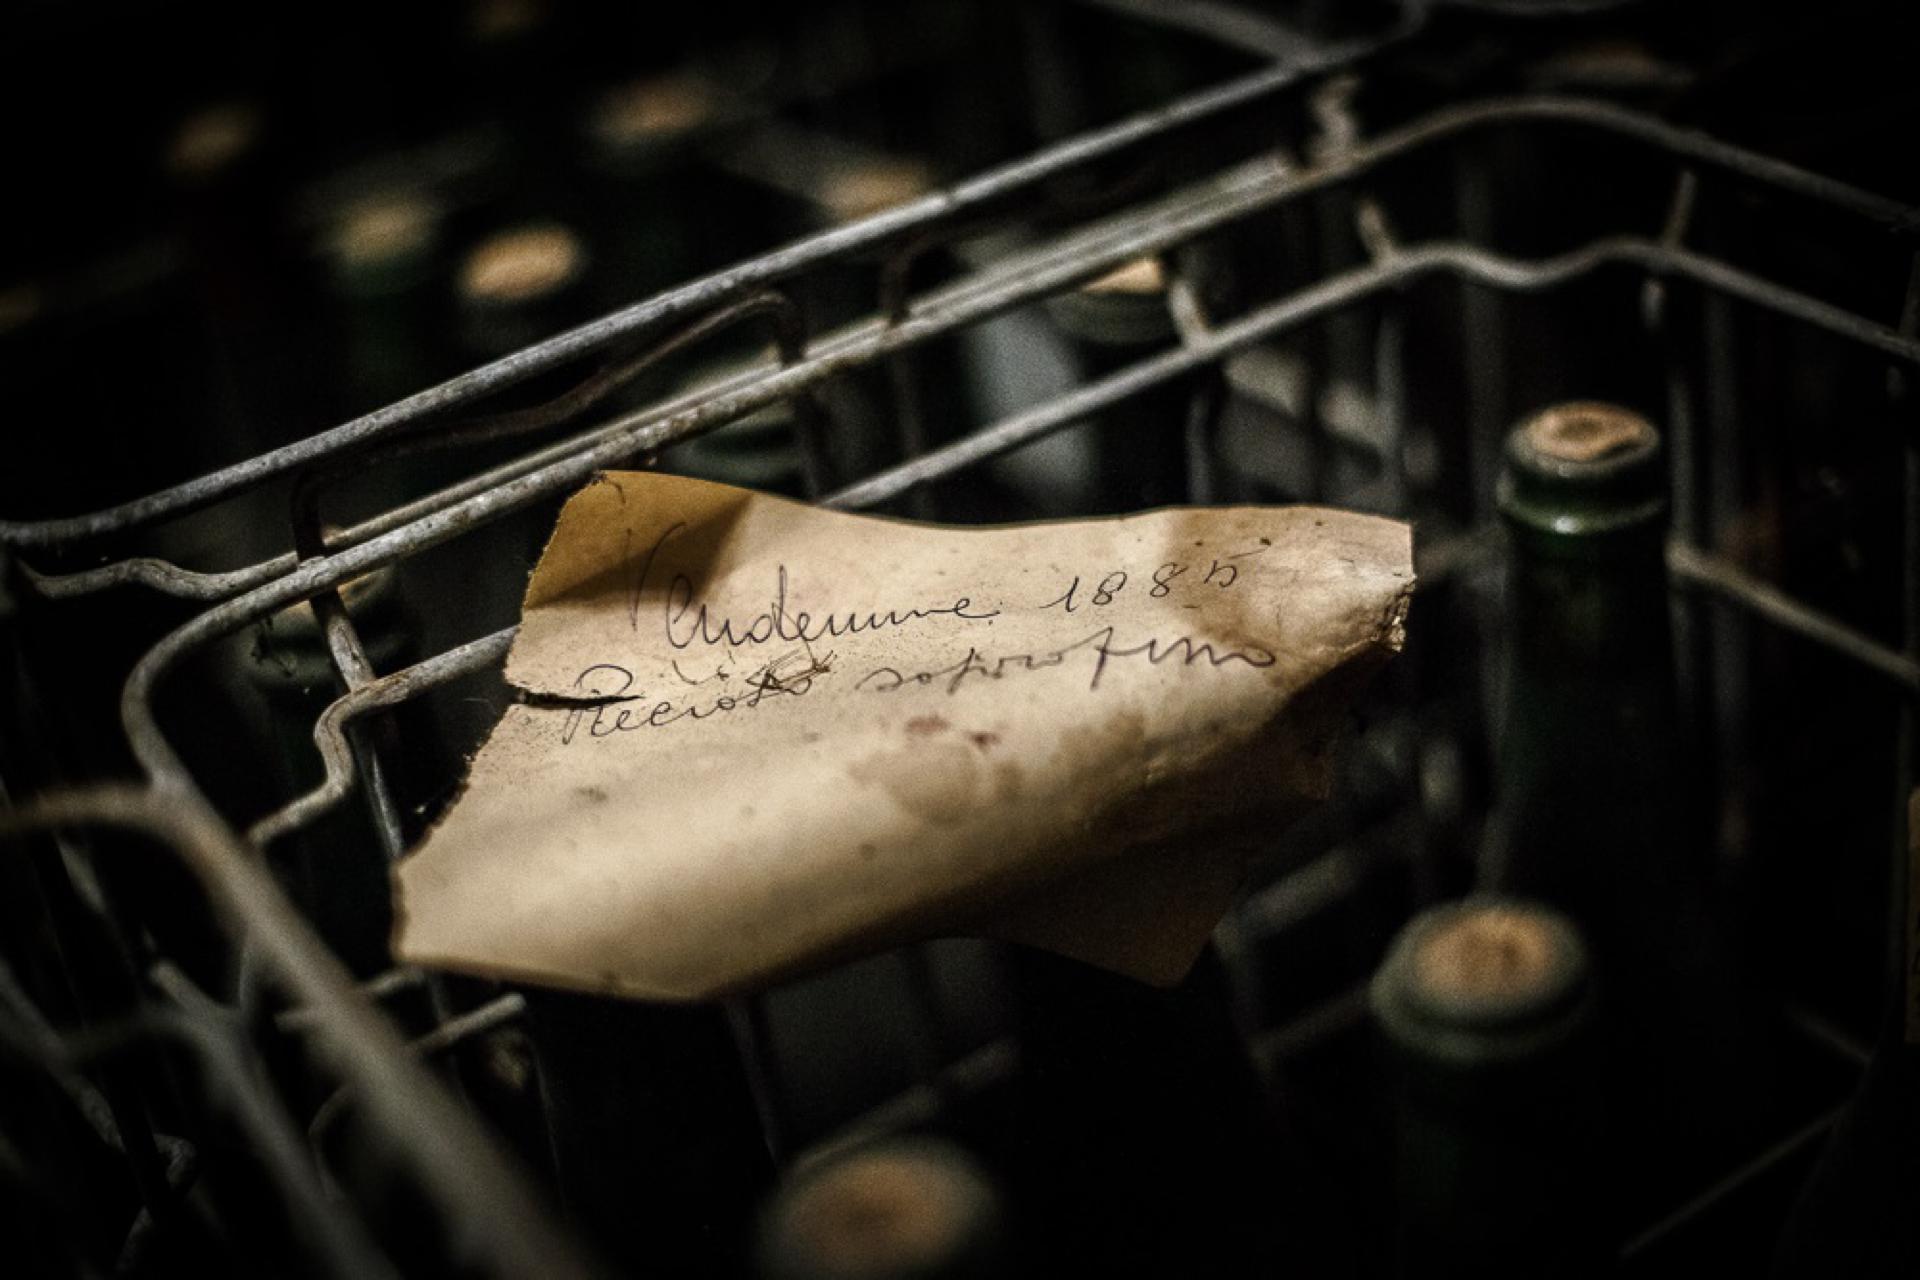 Vendemmie 1885
Recioto sopraffino